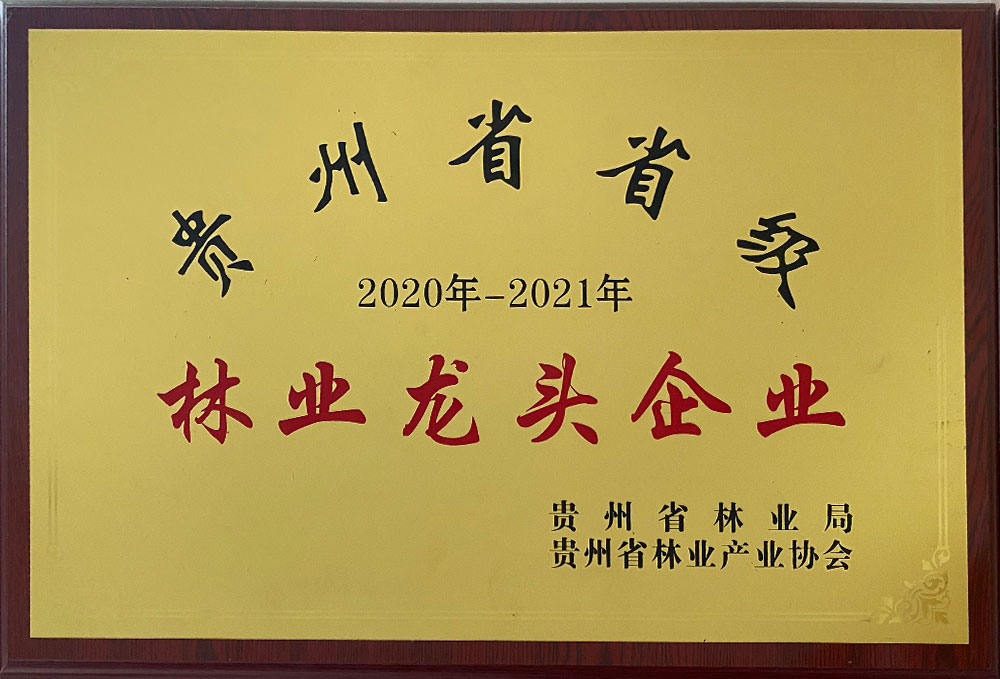 贵州省省级
2020年-2021年
林业龙头企业
贵州省林业局
贵州省林业产业协会